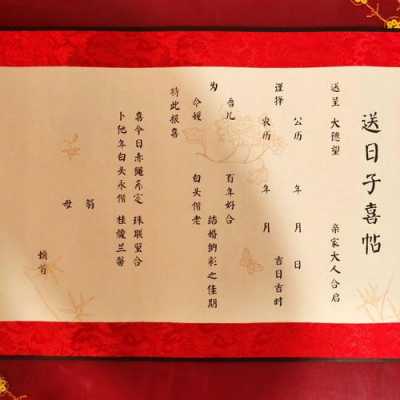 送日子喜帖
送呈 大德望 亲家大人合启
公历 年 月 日
谨择 吉日吉时
农历 年 月
为
愚儿 百年好合
结婚纳彩之佳期
令媛 白头偕老
特此报喜
喜今日赤绳系定 珠联璧合
卜他年白头永偕 桂馥兰馨
翁
母
顿首